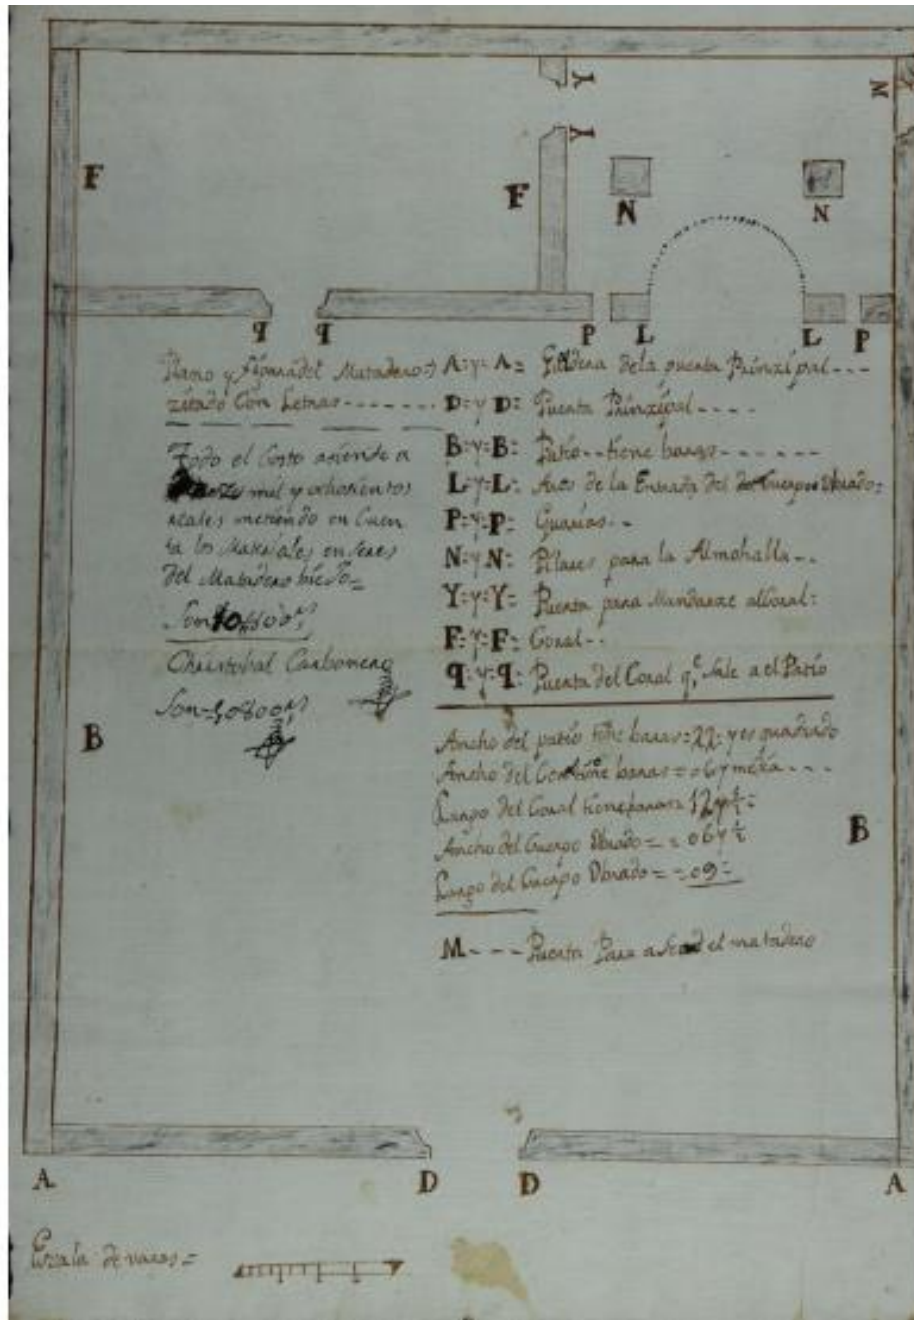 Y
M
Y
F
F
N
N
q
q
P
L
L
P
Plano y figura del Matadero
zitado Con Letras
Todo el Costo asiende a
mil y ochosientos
reales metiendo en Cuen
ta los Materiales
del Matadero biejo=
Son
Christobal Carbonero
Son=
A=y=A= de la puerta Prinzipal
D=y D= Puerta Prinzipal
B=y=B= Patio tiene baras
L=y=L= Arco de la Entrada del Cuerpo Obrado=
P=y=P= Guarias
N=y N= Pilares para la Almohalla
Y=y=Y= Puerta para Mandarze al Coral=
F=y=F= Coral
q=y=q= Puerta del Coral q.e sale a el Patio
Ancho del patio tiene baras=22= y es quadrado
Ancho del baras=06 y media
Largo del Coral tiene baras=12 y
Ancho del Cuerpo Obrado==06 y ½
Largo del Cuerpo Obrado==09=
M Puerta Para el matadero
B
B
A
D
D
A
Escala de varas=